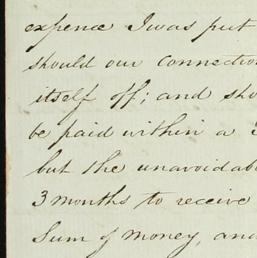 expence I was put
should our connectio
itself off; and sho
be paid within a
but the unavoidab
3 months to receive
Sum of money, and